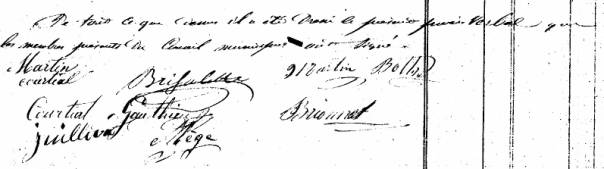 De tout ce que dessus il a été dressé le présent procès verbal que
les membres présents du Conseil municipal ont signé.
Martin Brisolette Martin Bolh
Courtial
Courtial Gauthier Brionnet
Juillien Mège